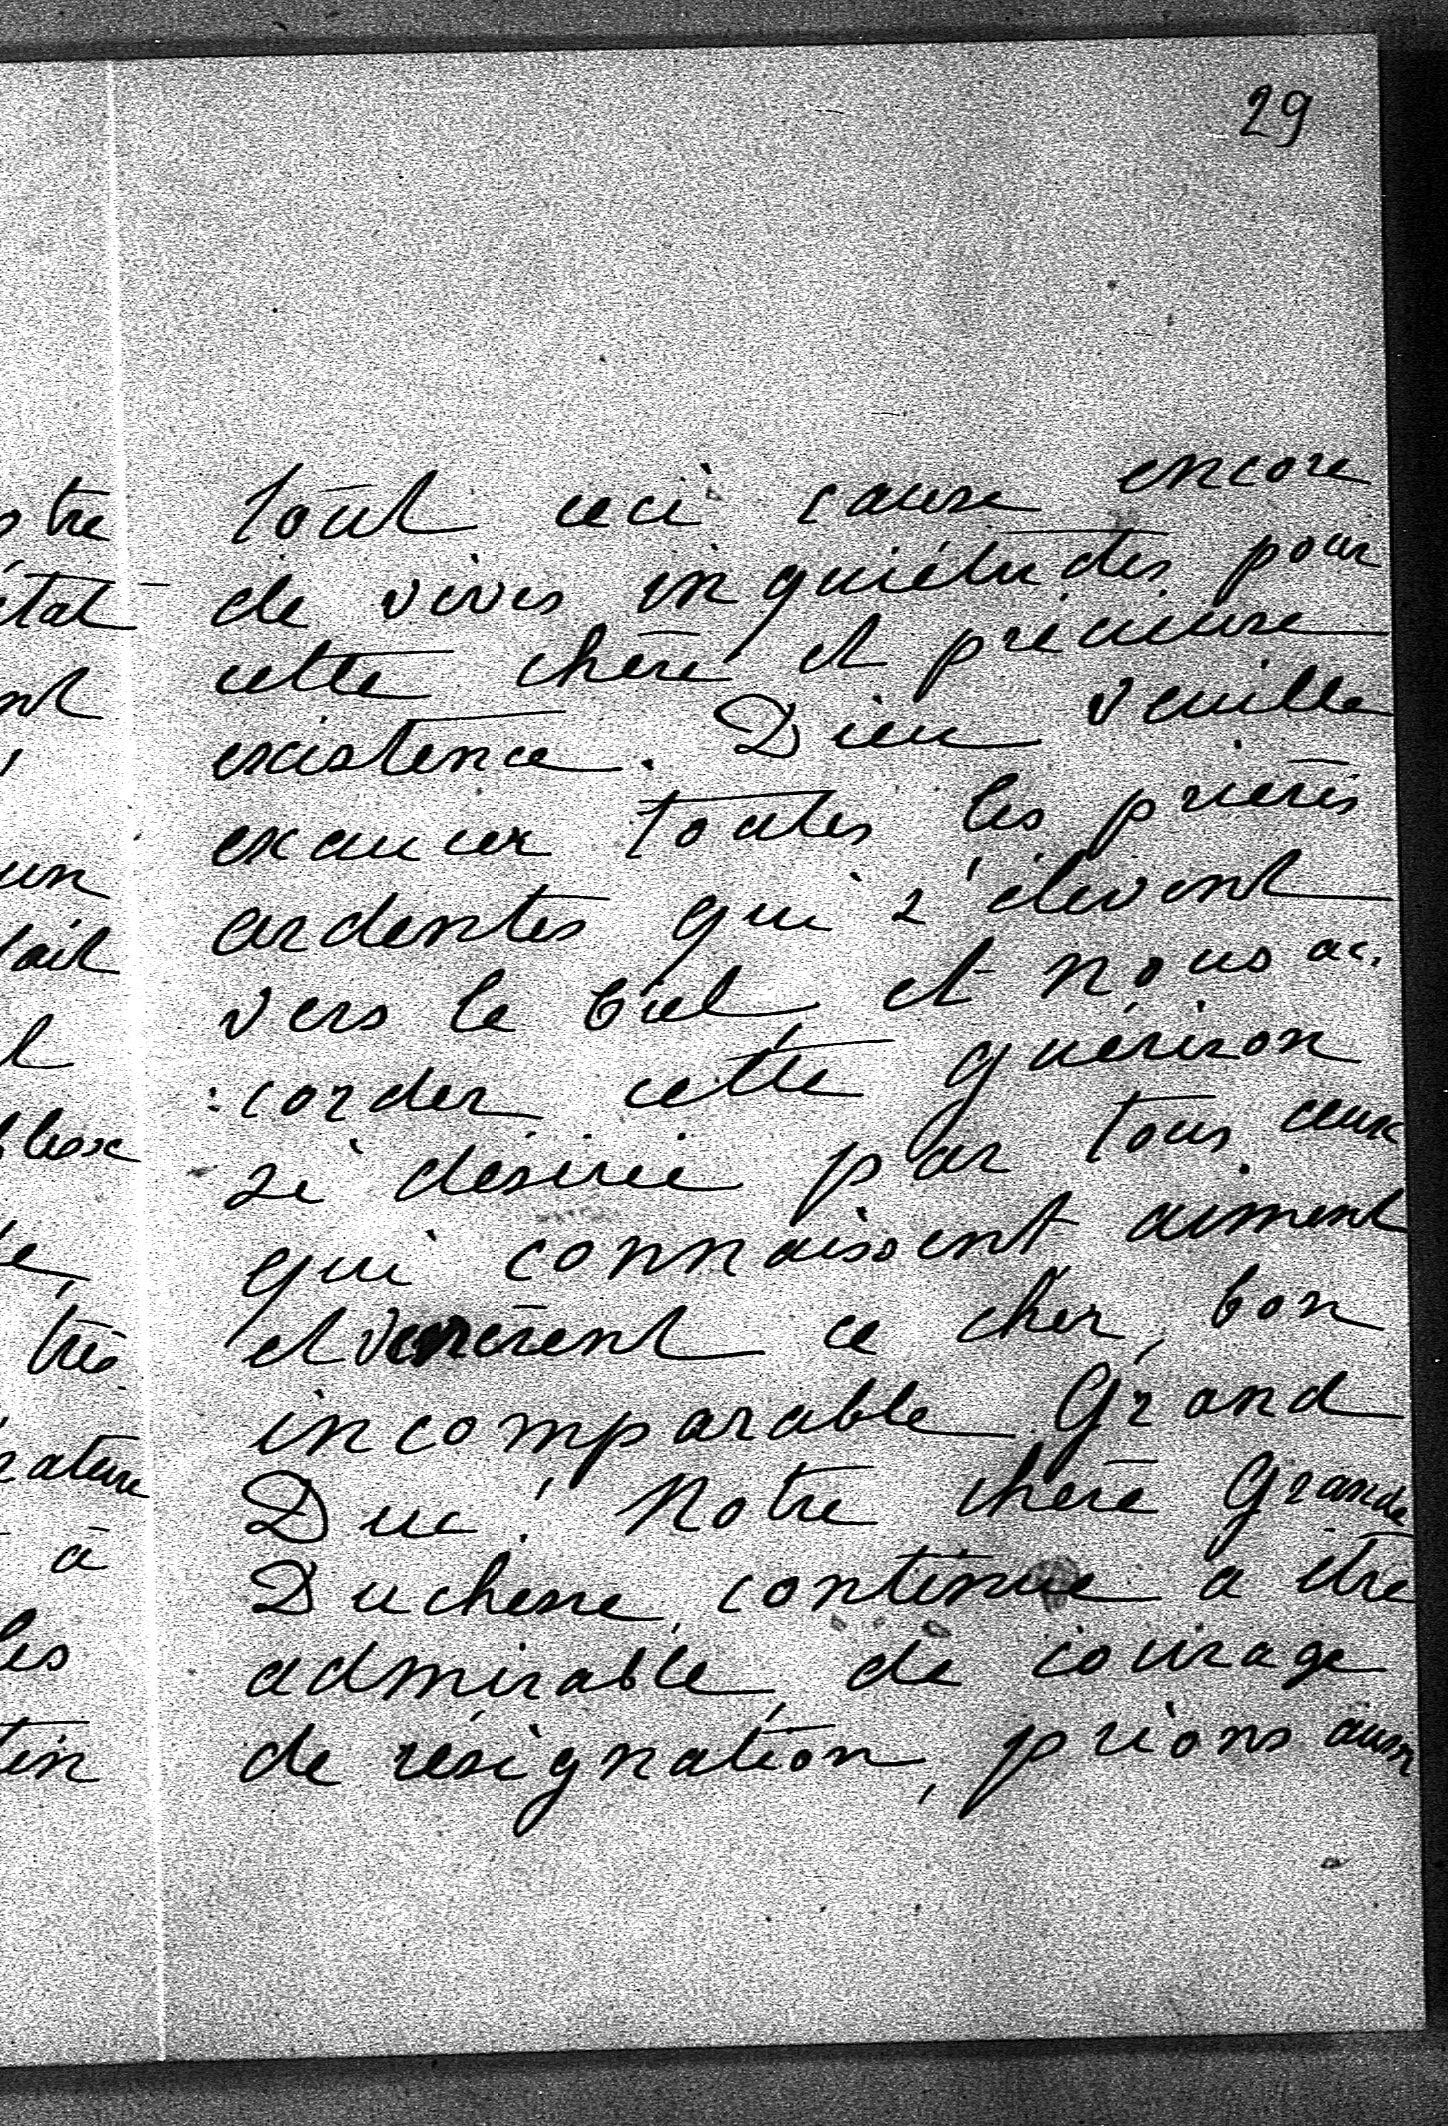 29
tout ceci cause encore
de vives inquiétudes pour
cette chère et précieuse
existence. Dieu veuille
exaucer toutes les prières
ardentes qui s'élèvent
vers le Ciel et nous ac.
:corder cette guérison
si désirée par tous ceux
qui connaissent aiment
et vénèrent ce cher, bon
incomparable Grand
Duc! Notre chère Grande
Duchesse, continue a être
admirable, de courage
de résignation, prions aussi